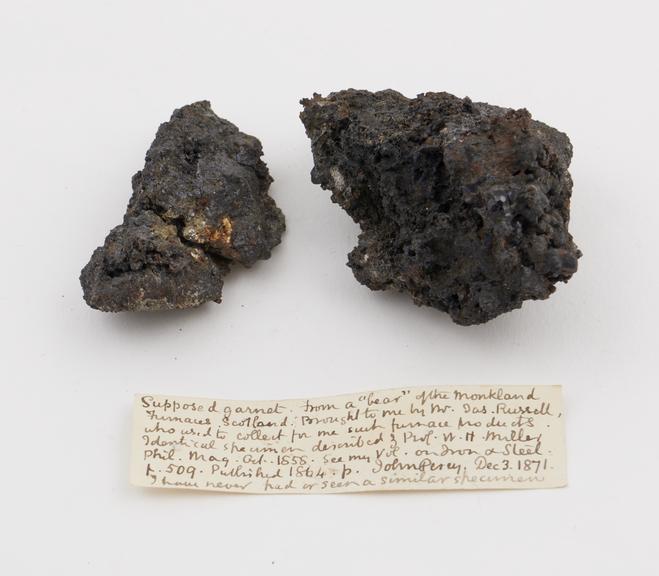 Supposed garnet. From a "bear" of the Monkland
Furnaces, Scotland. Brought to me by Mr. Jas. Russell,
who used to collect for me such furnace products.
Identical specimen described by Prof. W. H. Miller,
Phil. Mag. Oct. 1858. See my Vol. on Iron & Steel.
p. 509. Published 1864. p. John Percy, Dec 3. 1871.
I have never had or seen a similar specimen